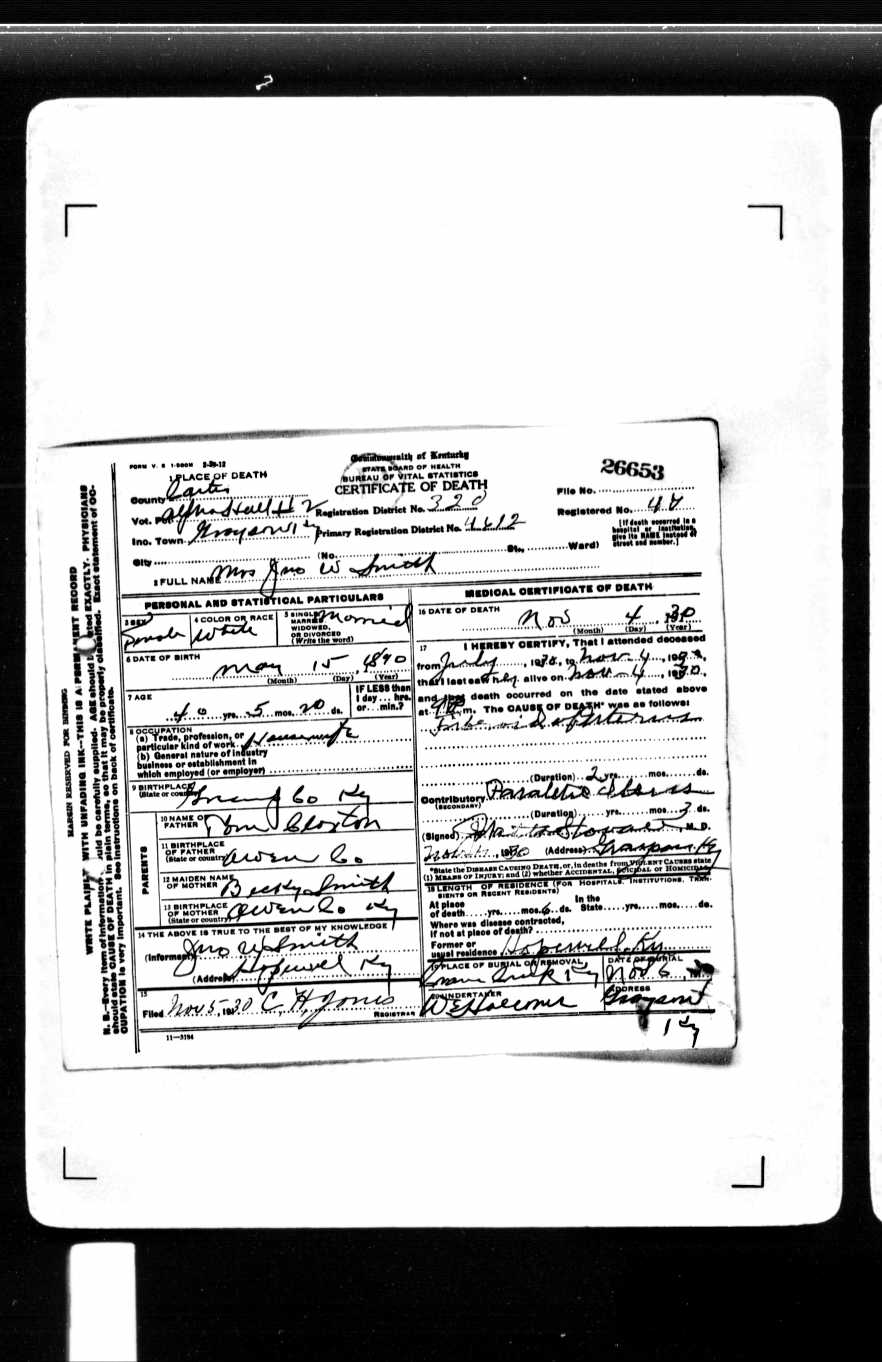 FORM V. S 1-500M 2-29-12
Commonwealth of Kentucky
STATE BOARD OF HEALTH
BUREAU OF VITAL STATISTICS
CERTIFICATE OF DEATH
26653
1 PLACE OF DEATH
County Carter
Vot. Pct. Hall H 2 Registration District No. 320
File No.
Registered No.
Inc. Town Grayson Ky Primary Registration District No. 4612
[If death occurred in a hospital or institution, give its NAME instead of street and number.]
City (No. St., Ward)
2 FULL NAME Mrs Jno W Smith
PERSONAL AND STATISTICAL PARTICULARS
3 SEX Female
4 COLOR OR RACE White
5 SINGLE, MARRIED, WIDOWED, OR DIVORCED (Write the word) Married
6 DATE OF BIRTH May 15, 1890
(Month) (Day) (Year)
7 AGE 40 yrs. 5 mos. 20 ds.
IF LESS than 1 day ... hrs. or ... min.?
8 OCCUPATION
(a) Trade, profession, or particular kind of work Housewife
(b) General nature of industry
business or establishment in
which employed (or employer)
9 BIRTHPLACE
(State or country) Co Ky
PARENTS
10 NAME OF FATHER Tom Cloxton
11 BIRTHPLACE OF FATHER (State or country) Owen Co
12 MAIDEN NAME OF MOTHER Becky Smith
13 BIRTHPLACE OF MOTHER (State or country) Owen Co Ky
14 THE ABOVE IS TRUE TO THE BEST OF MY KNOWLEDGE
(Informant) Jno W Smith
(Address) Hopewel Ky
15
Filed Nov 5-30 C. H. Jones
REGISTRAR
11—3184
MEDICAL CERTIFICATE OF DEATH
16 DATE OF DEATH Nov 4, 30
(Month) (Day) (Year)
17 I HEREBY CERTIFY, That I attended deceased
from July, 1930, to Nov-4, 1930,
that I last saw her alive on Nov-4, 1930,
and that death occurred on the date stated above
at m. The CAUSE OF DEATH* was as follows:
(Duration) 2 yrs. mos. ds.
Contributory
(SECONDARY)
(Duration) yrs. mos. 3 ds.
(Signed) M. D.
1930 (Address) Grayson Ky
*State the DISEASE CAUSING DEATH, or, in deaths from VIOLENT CAUSES state
(1) MEANS OF INJURY; and (2) whether ACCIDENTAL, SUICIDAL or HOMICIDAL
18 LENGTH OF RESIDENCE (FOR HOSPITALS, INSTITUTIONS, TRANSIENTS OR RECENT RESIDENTS)
At place of death yrs. mos. 6 ds. In the State yrs. mos. ds.
Where was disease contracted,
if not at place of death?
Former or
usual residence Hopewell Ky
19 PLACE OF BURIAL OR REMOVAL Ky
DATE OF BURIAL Nov 6
20 UNDERTAKER
ADDRESS Grayson
Ky
MARGIN RESERVED FOR BINDING
WRITE PLAINLY WITH UNFADING INK—THIS IS A PERMANENT RECORD
N. B.—Every item of information should be carefully supplied. AGE should be stated EXACTLY. PHYSICIANS
should state CAUSE OF DEATH in plain terms, so that it may be properly classified. Exact statement of OC-
CUPATION is very important. See instructions on back of certificate.